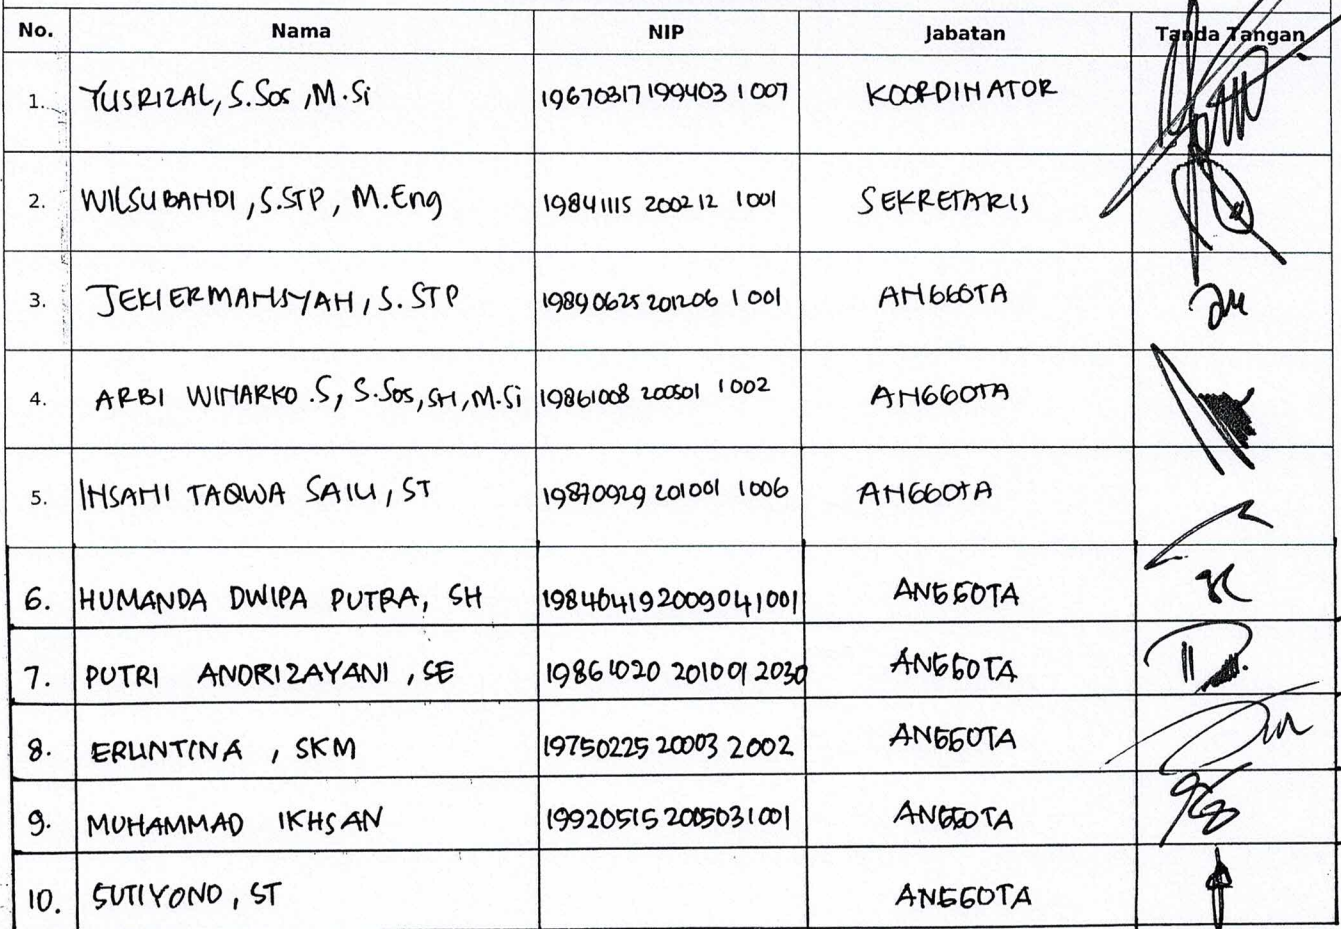 No. Nama NIP Jabatan Tanda Tangan
1. YUSRIZAL, S.Sos, M.Si 19670317 199403 1 007 KOORDINATOR
2. WILSUBANDI, S.STP, M.Eng 19841115 200212 1 001 SEKRETARIS
3. JEKI ERMANSYAH, S.STP 19890625 201206 1 001 ANGGOTA
4. ARBI WINARKO .S, S.Sos, SH, M.Si 19861008 200501 1 002 ANGGOTA
5. IHSANI TAQWA, ST 19870929 201001 1 006 ANGGOTA
6. HUMANDA DWIPA PUTRA, SH 198404192009041001 ANGGOTA
7. PUTRI ANDRIZAYANI, SE 19861020 201001 2030 ANGGOTA
8. ERLINTINA, SKM 19750225 20003 2002 ANGGOTA
9. MUHAMMAD IKHSAN 19920515 2005031001 ANGGOTA
10. SUTIYONO, ST ANGGOTA